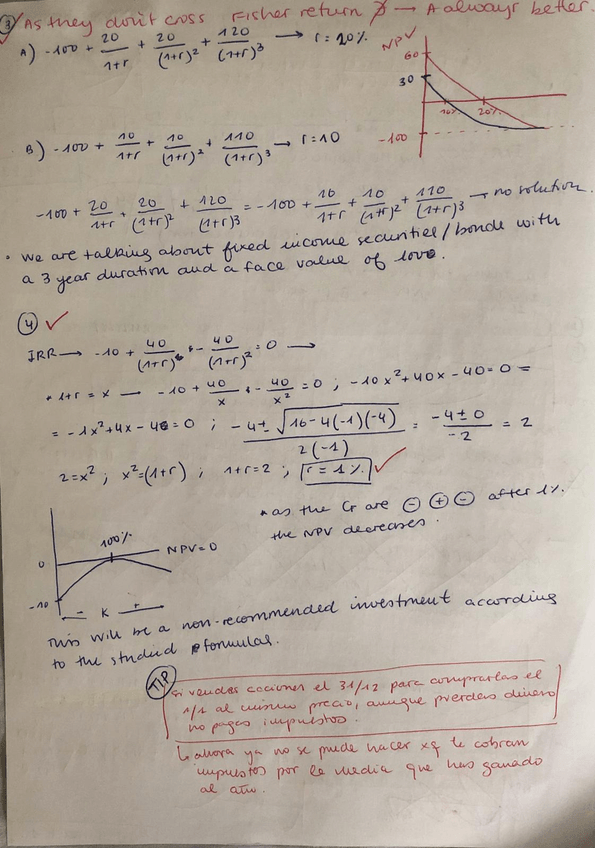 ③ As they don't cross Fisher return ∄ → A always better.
A) -100 + 20/(1+r) + 20/(1+r)² + 120/(1+r)³ → r = 20%
NPV
60
30
10%
20%
-100
B) -100 + 10/(1+r) + 10/(1+r)² + 110/(1+r)³ → r = 10
-100 + 20/(1+r) + 20/(1+r)² + 120/(1+r)³ = -100 + 10/(1+r) + 10/(1+r)² + 110/(1+r)³ → no solution.
• We are talking about fixed income securities/bonds with
a 3 year duration and a face value of 100€.
④ ✓
IRR → -10 + 40/(1+r) - 40/(1+r)² = 0 →
• 1+r = x → -10 + 40/x - 40/x² = 0 ; -10x² + 40x - 40 = 0 =
= -1x² + 4x - 4 = 0 ; -4± √16-4(-1)(-4) / 2(-1) = -4±0 / -2 = 2
2 = x² ; x² = (1+r) ; 1+r = 2 ; r = 1% ✓
* as the CF are ⊖ ⊕ ⊖ after 1%
the NPV decreases.
100%
0
NPV=0
-10
K
r
This will be a non-recommended investment according
to the studied formulas.
TIP
Si vendes acciones el 31/12 para comprarlas el
1/1 al mismo precio, aunque pierdas dinero
no pagas impuestos.
↳ ahora ya no se puede hacer xq te cobran
impuestos por la media que has ganado
al año.